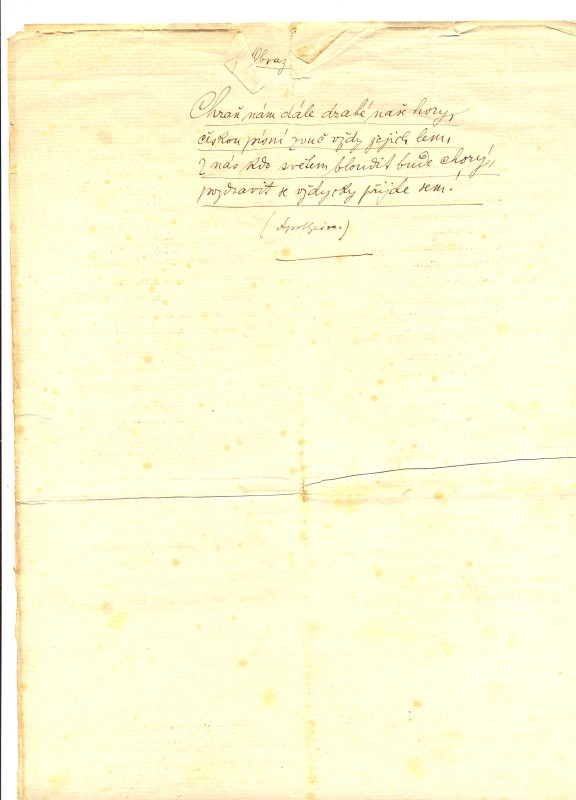 Obraz
Chraň nám dále drahé naše hory,
českou písní zvuč vždy jejich lem,
z nás kdo světem bloudit bude chorý,
pozdravit se vždycky přijde sem.
(Apotheosa.)